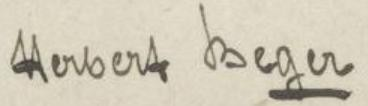 Herbert Beger